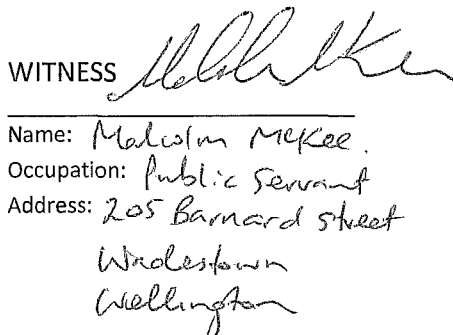 WITNESS
Name: Malcolm McKee.
Occupation: Public Servant
Address: 205 Barnard street
Wadestown
Wellington